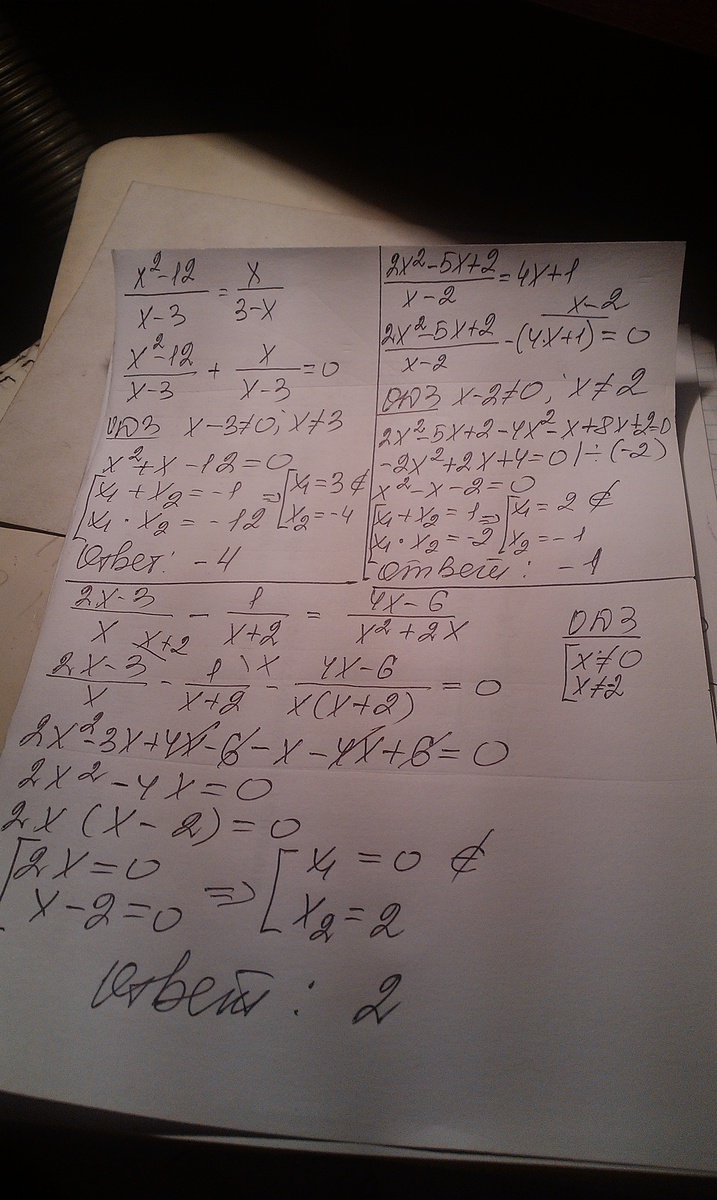 x²-12/x-3 = x/3-x
x²-12/x-3 + x/x-3 = 0
ОДЗ x-3≠0; x≠3
x²+x-12=0
[x₁+x₂=-1 => [x₁=3 ∉
x₁·x₂=-12 x₂=-4
Ответ: -4
2x²-5x+2/x-2 = 4x+1
x-2
2x²-5x+2/x-2 -(4x+1)=0
ОДЗ x-2≠0; x≠2
2x²-5x+2-4x²-x+8x+2=0
-2x²+2x+4=0 |÷(-2)
x²-x-2=0
[x₁+x₂=1 => [x₁=2 ∉
x₁·x₂=-2 x₂=-1
Ответ: -1
2x-3/x - 1/x+2 = 4x-6/x²+2x
ОДЗ
[x≠0
x≠-2
2x-3/x \x+2 - 1/x+2 \x - 4x-6/x(x+2) = 0
2x²-3x+4x-6-x-4x+6=0
2x²-4x=0
2x(x-2)=0
[2x=0 => [x₁=0 ∉
x-2=0 x₂=2
Ответ: 2